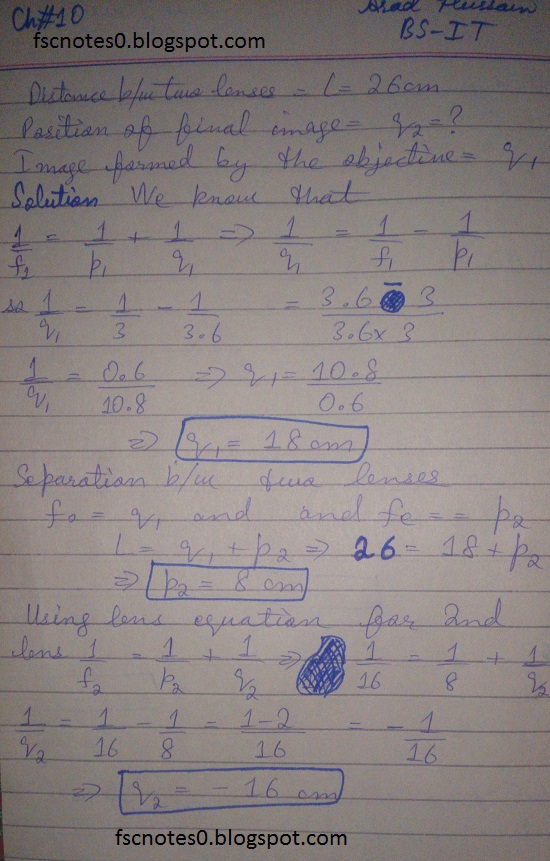 Ch#10 Asad Hussain
fscnotes0.blogspot.com BS-IT
Distance b/w two lenses = L = 26cm
Position of final image = q₂ = ?
Image formed by the objective = q₁
Solution We know that
1/f₁ = 1/p₁ + 1/q₁ => 1/q₁ = 1/f₁ - 1/p₁
so 1/q₁ = 1/3 - 1/3.6 = 3.6 - 3/3.6 x 3
1/q₁ = 0.6/10.8 => q₁ = 10.8/0.6
=> q₁ = 18 cm
Separation b/w two lenses
fo = q₁ and and fe == p₂
L = q₁ + p₂ => 26 = 18 + p₂
=> p₂ = 8 cm
Using lens equation for 2nd
lens 1/f₂ = 1/p₂ + 1/q₂ => 1/16 = 1/8 + 1/q₂
1/q₂ = 1/16 - 1/8 = 1-2/16 = -1/16
=> q₂ = -16 cm
fscnotes0.blogspot.com